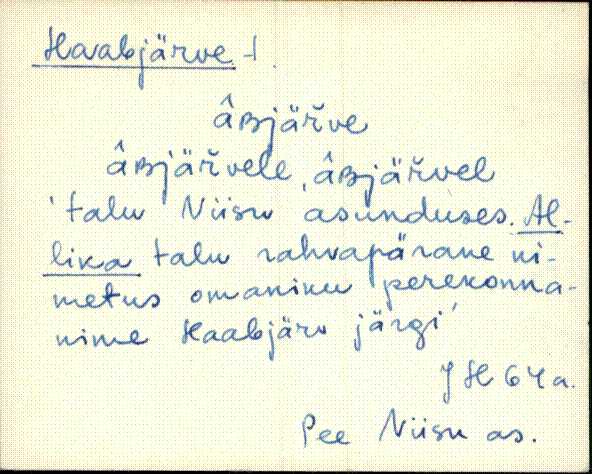 Haabjärve -t.
âʙjäřve
âʙjäřvele, âʙjäřvel
'talu Niisu asunduses. Al-
lika talu rahvapärane ni-
metus omaniku perekonna-
nime Haabjärv järgi'
JH 64a.
Pee Niisu as.